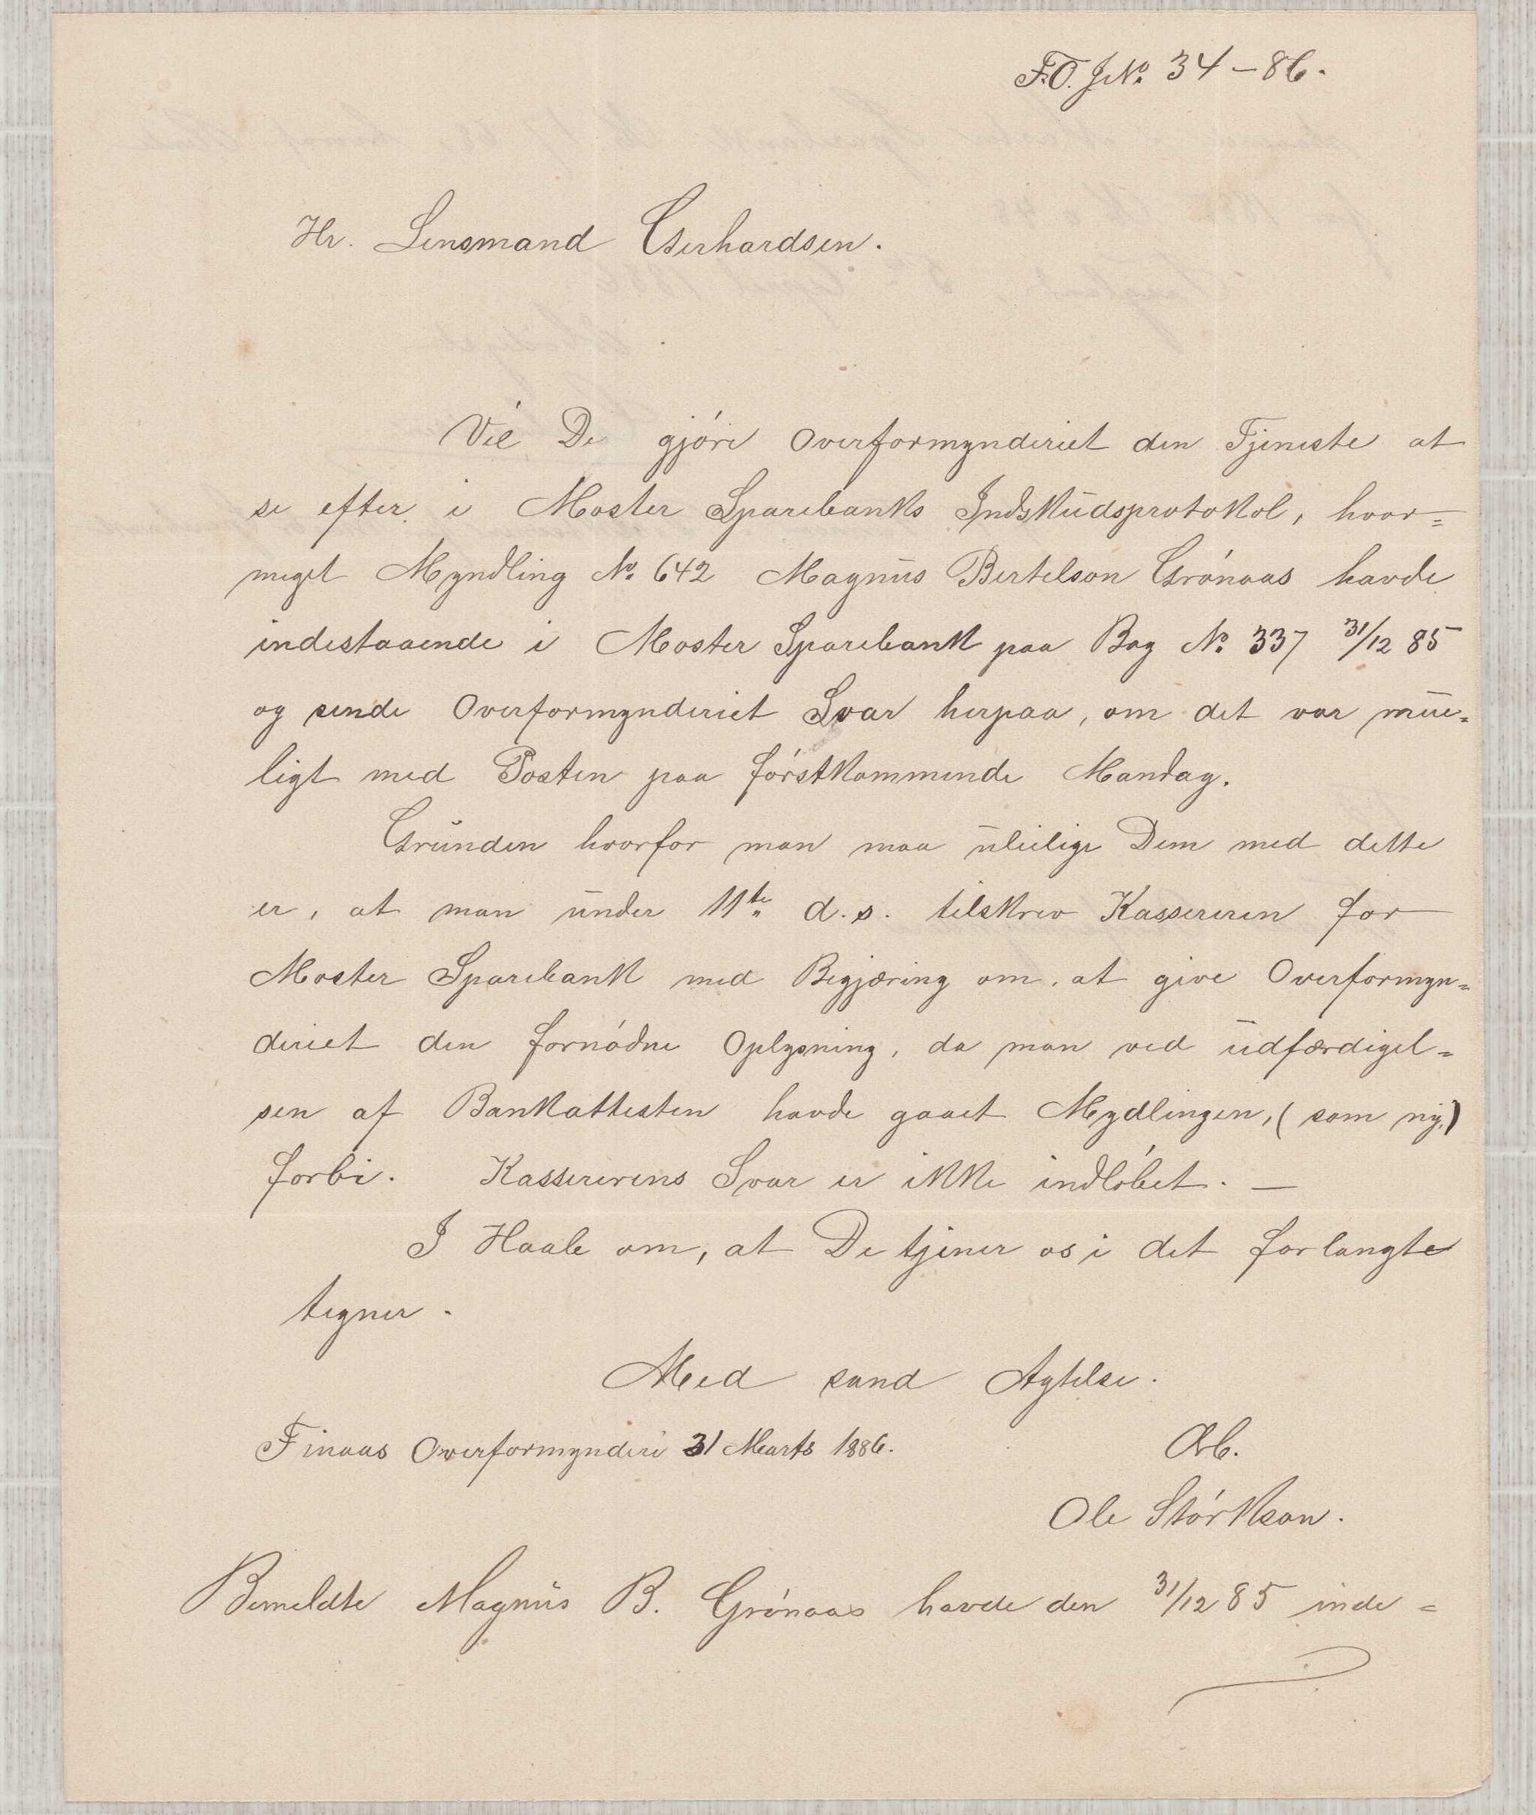 F.O. J.No. 34-86.
Hr. Lensmand Gerhardsen.
Vil De gjóre Overformynderiet den Tjeneste at
se efter i Moster Sparebanks Indskudsprotokol, hvor=
meget Myndling No. 642 Magnus Bertelson Grónaas havde
indestaaende i Moster Sparebank paa Bog No. 337 31/12 85
og sende Overformynderiet Svar herpaa, om det var mue=
ligt med Posten paa fórstkommende Mandag.
Grunden hvorfor man maa uleilige Dem med dette
er, at man under 11te d.s. tilskrev Kassereren for
Moster Sparebank med Begjæring om, at give Overformyn=
deriet den fornódne Oplysning, da man ved udfærdigel=
sen af Bankattesten havde gaaet Mydlingen, (som ny,)
forbi. Kassererens Svar er ikke indlóbet. —
I Haab om, at De tjener os i det forlangte
tegner.
Med sand Agtelse.
Finaas Overformynderi 31 Marts 1886.
Ærb.
Ole Stórkson.
Bemeldte Magnus B. Grónaas havde den 31/12 85 inde=